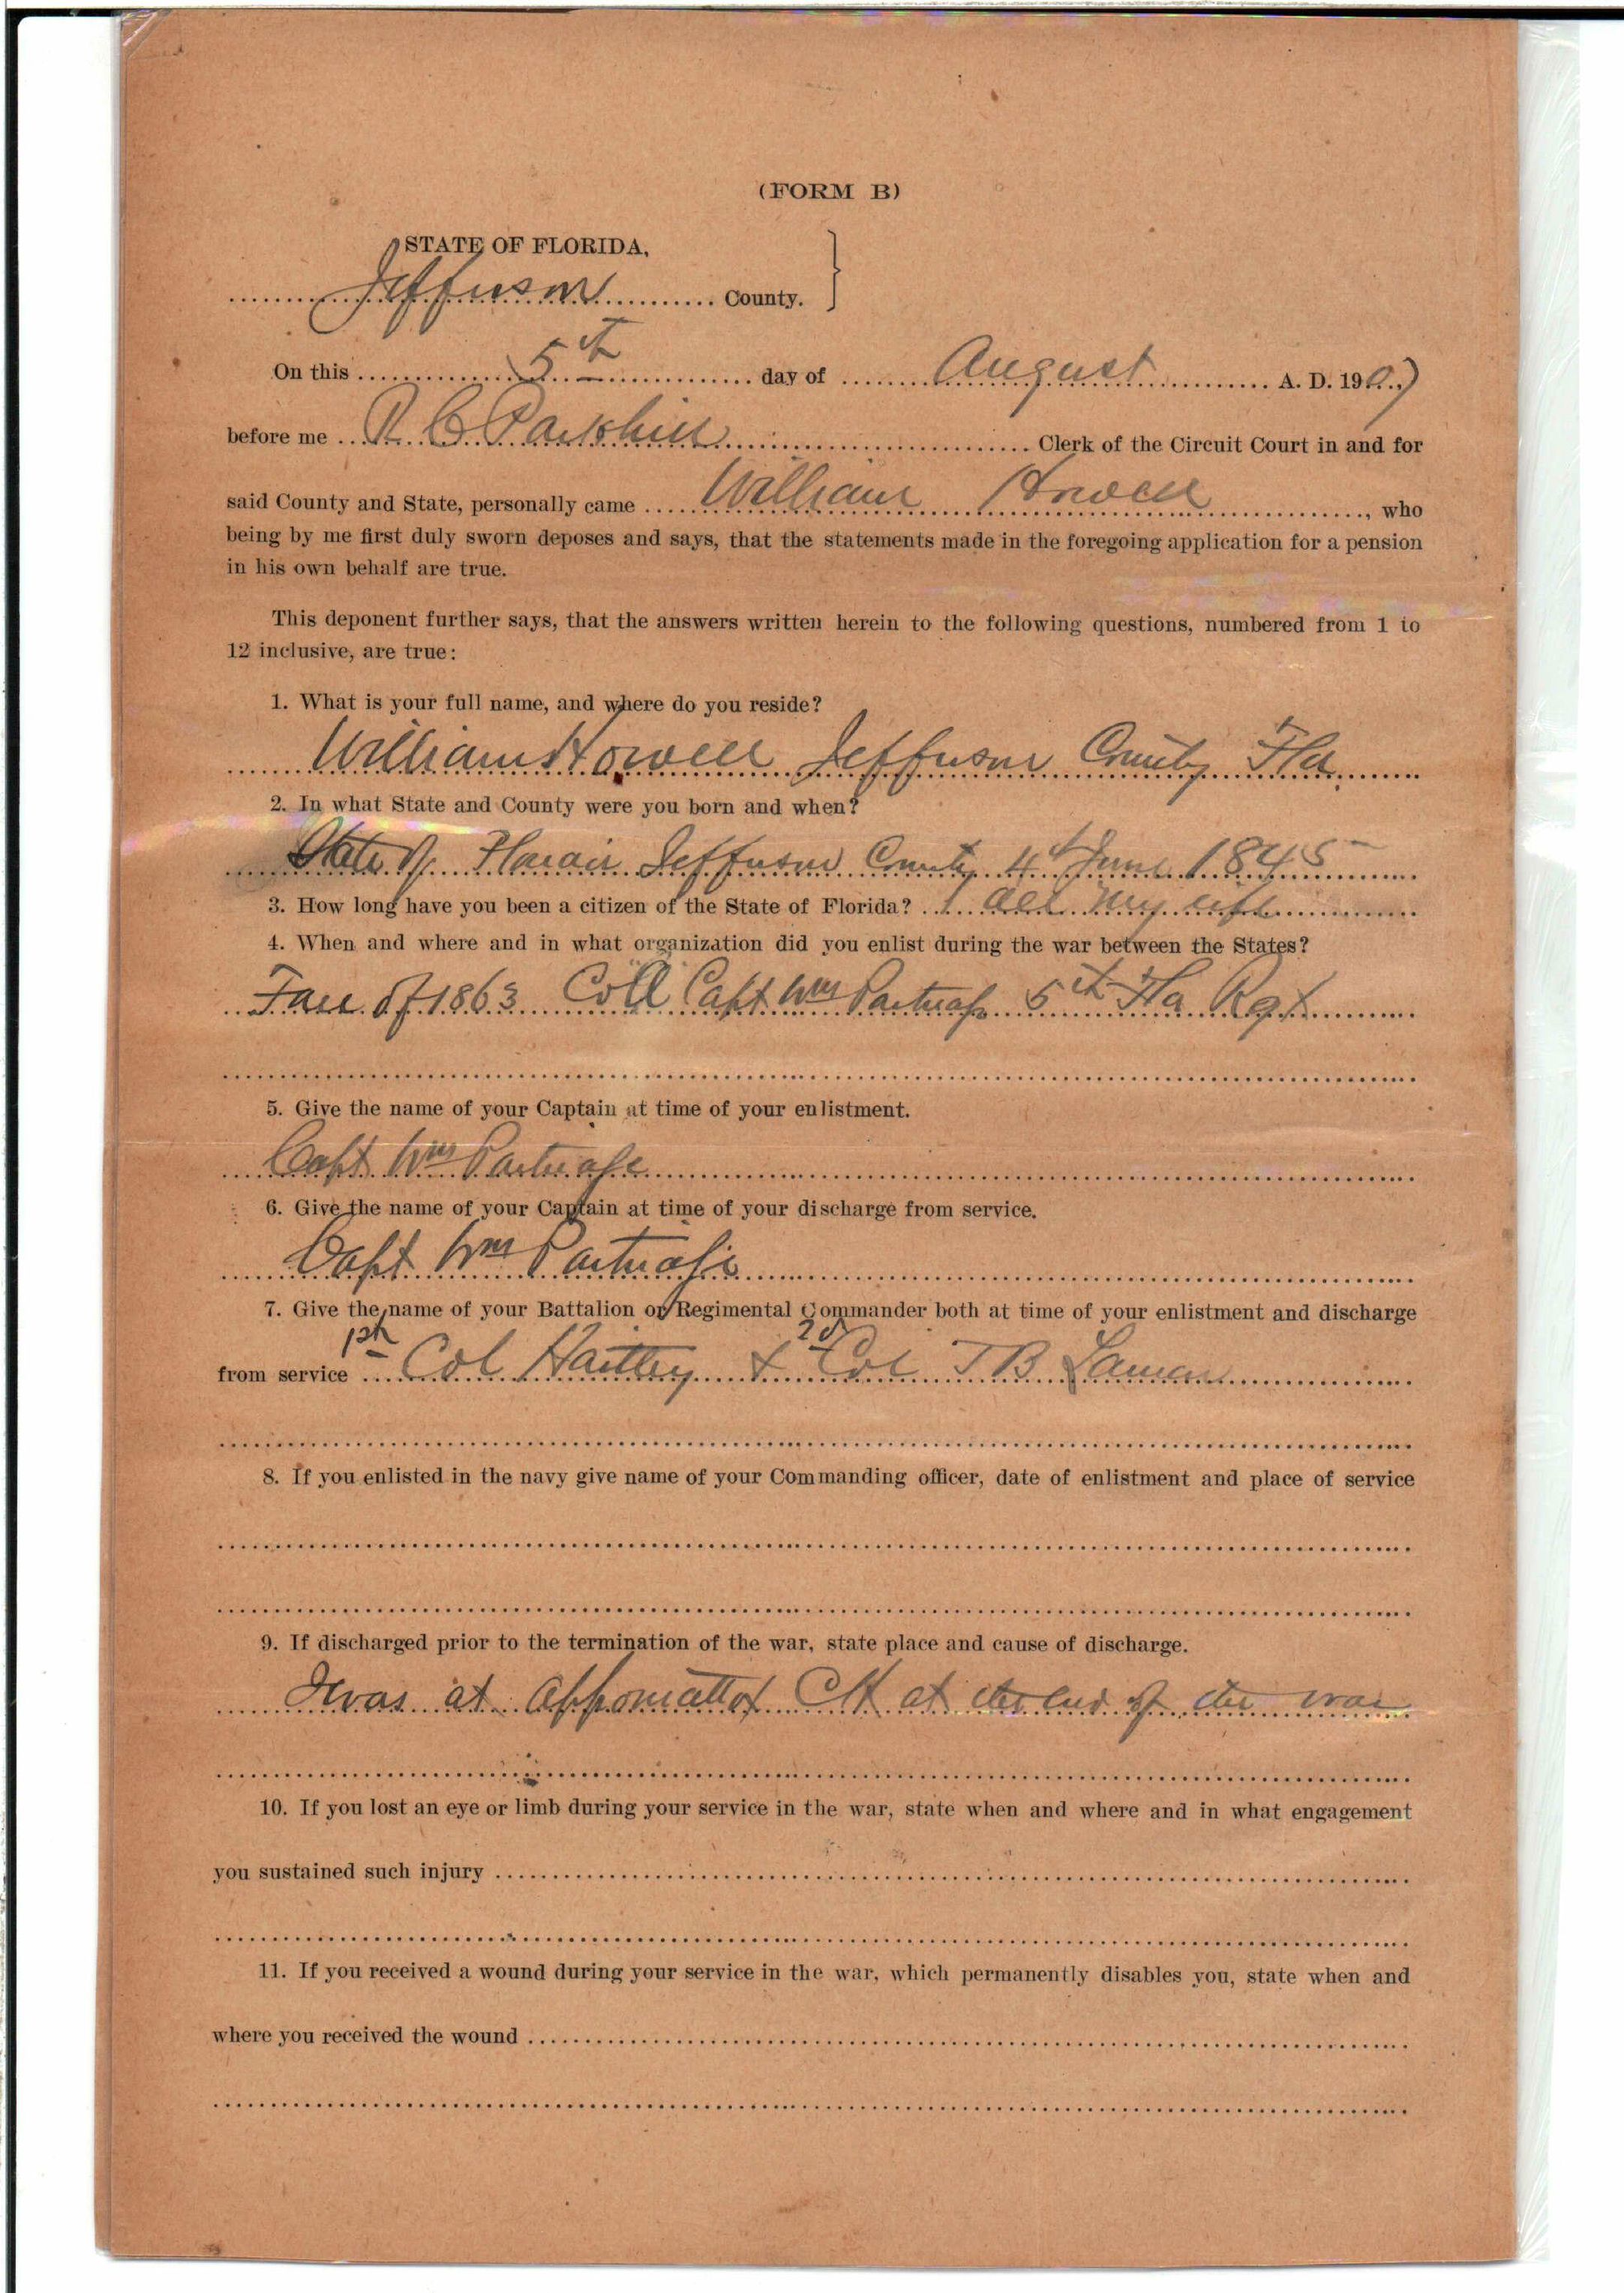 (FORM B)
STATE OF FLORIDA,
Jefferson County.
On this 5th day of August A. D. 1907
before me R C Parkhill Clerk of the Circuit Court in and for
said County and State, personally came William Howell, who
being by me first duly sworn deposes and says, that the statements made in the foregoing application for a pension
in his own behalf are true.
This deponent further says, that the answers written herein to the following questions, numbered from 1 to
12 inclusive, are true:
1. What is your full name, and where do you reside?
William Howell Jefferson County Fla.
2. In what State and County were you born and when?
State of Jefferson County 4th June 1845
3. How long have you been a citizen of the State of Florida? All my life
4. When and where and in what organization did you enlist during the war between the States?
Fall of 1863 Capt Wm 5th Fla Rgt
5. Give the name of your Captain at time of your enlistment.
Capt Wm
6. Give the name of your Captain at time of your discharge from service.
Capt Wm
7. Give the name of your Battalion or Regimental Commander both at time of your enlistment and discharge
1st 2d
from service Col & Col T B Lamar
8. If you enlisted in the navy give name of your Commanding officer, date of enlistment and place of service
9. If discharged prior to the termination of the war, state place and cause of discharge.
I was at Appomattox CH at the end of the war
10. If you lost an eye or limb during your service in the war, state when and where and in what engagement
you sustained such injury
11. If you received a wound during your service in the war, which permanently disables you, state when and
where you received the wound